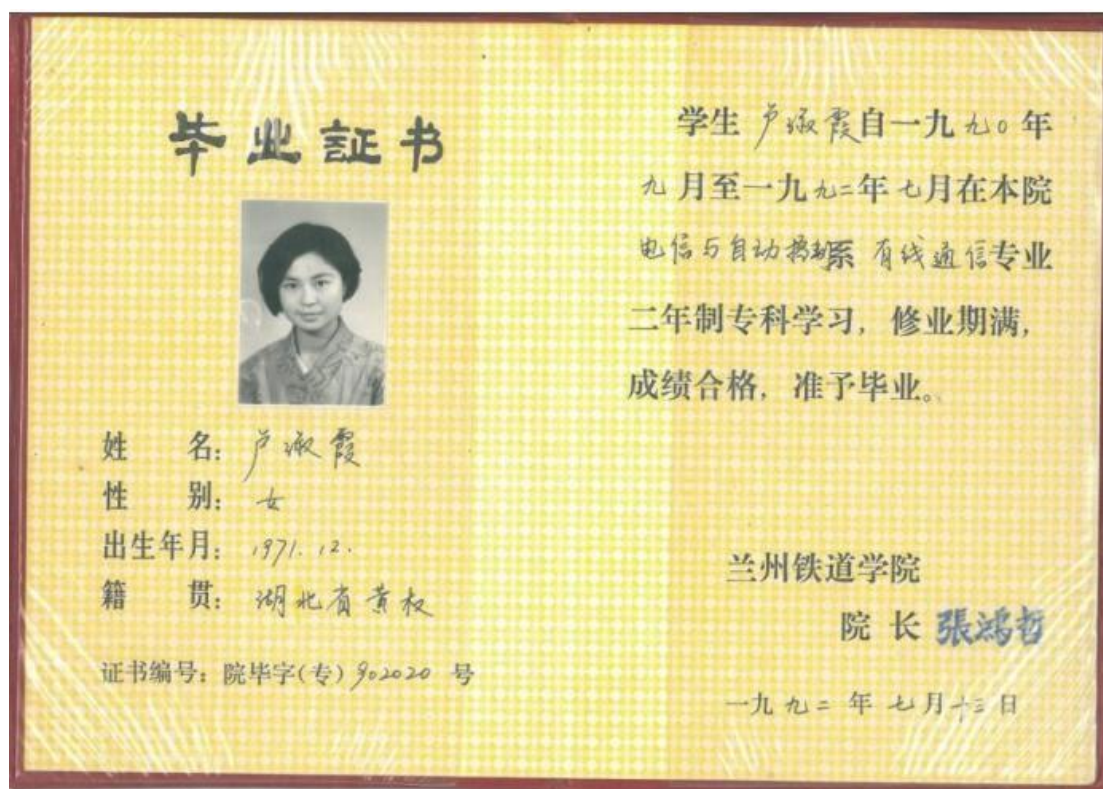 毕业証书
姓 名：卢淑霞
性 别：女
出生年月：1971.12.
籍 贯：湖北省黄
证书编号：院毕字(专)902020 号
学生 卢淑霞自一九九〇年
九月至一九九二年七月在本院
电信与自动控制系 有线通信专业
二年制专科学习，修业期满，
成绩合格，准予毕业。
兰州铁道学院
院 长 張鴻哲
一九九二 年 七月十三日